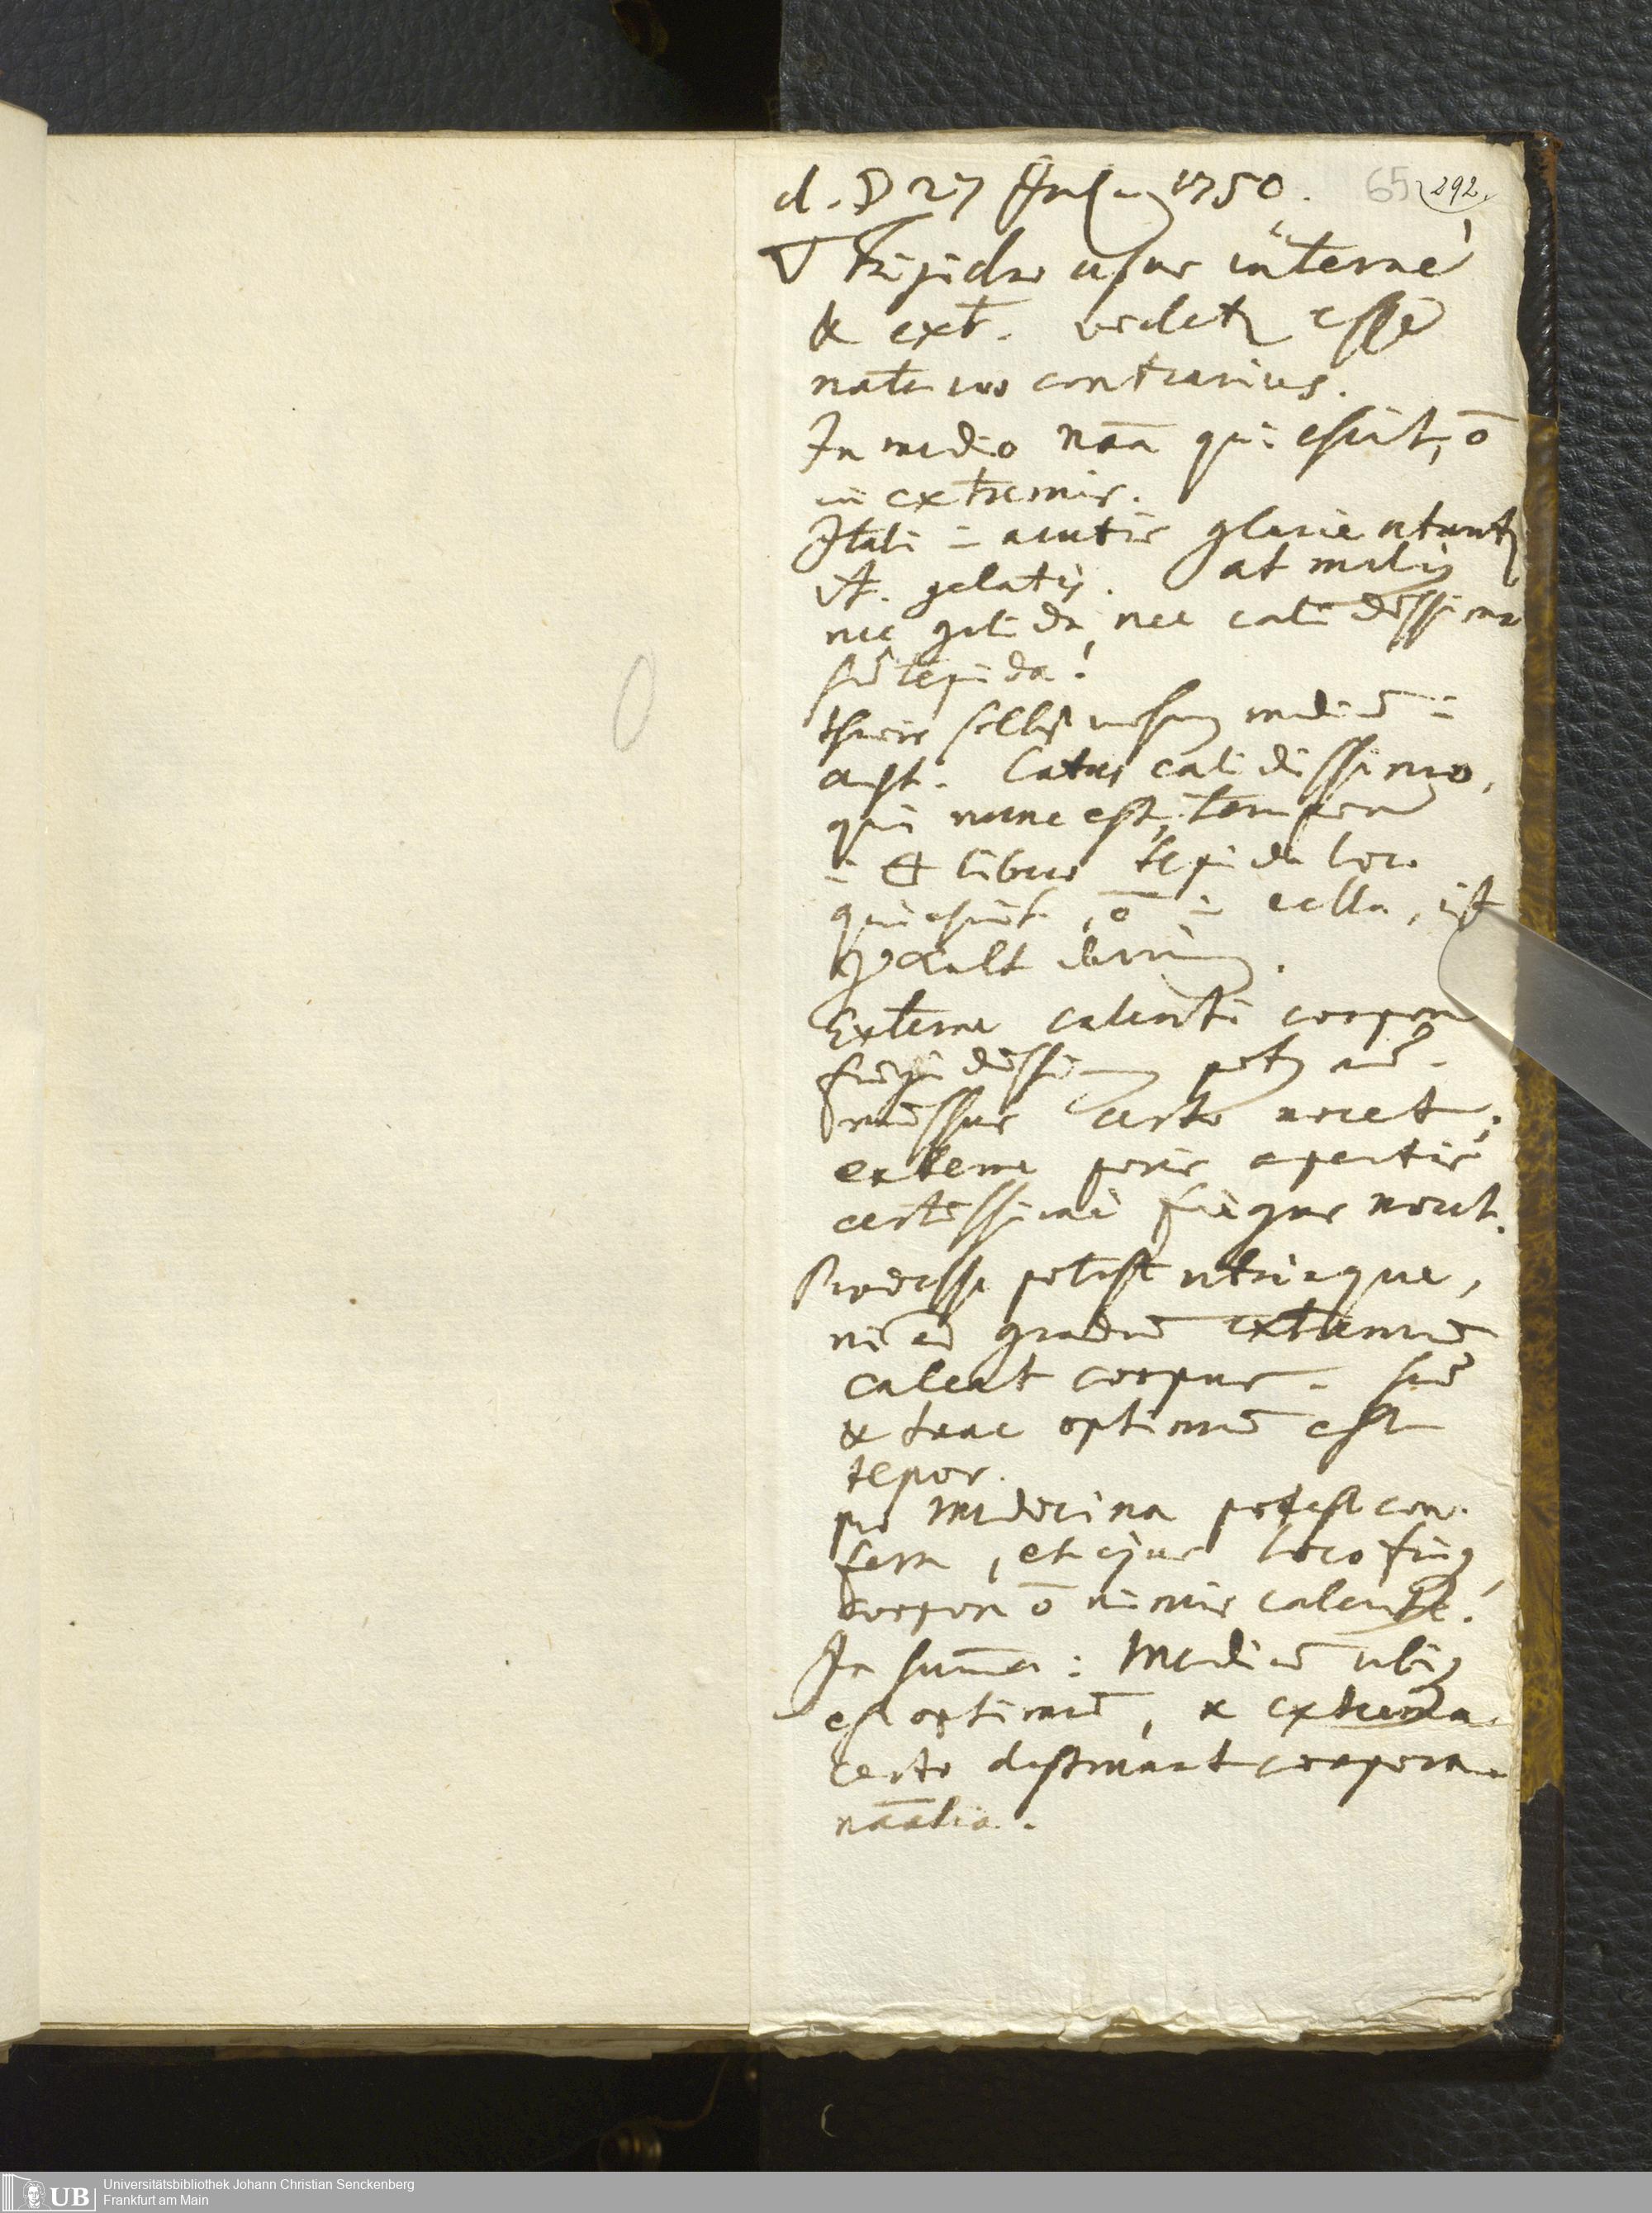 d. ☽ 27 1750. 65 292.
▽ frigidae usus interne
& ext. videtr esse
contrarius.
In medio nāa quiescit, ō
in extremis.
Itali in acutis glacie utuntr
gelatis. at melius
nec gelida, nec calidissima
sed tepida!
medium in
aest. Catus calidissimo,
qui nunc est, tempore
in tepido loco
quiescit, ō in cella, ist
kalt darinnen.
Externe calenti corpore
frigidissimus potus
missus certe nocet;
externe poris apertis
certissime frigus nocet.
Prodesse potest utrinque,
ni ad gradum extremum
caleat corpus. sed
& tunc optimum est
tepor.
pro medicina potest con-
ferri, et ejus loco frig,
corpore ō nimis calente.
In summa: Medium ubiq
est optimum, & extrema
certo destruunt corpora
nāalia.
Universitätsbibliothek Johann Christian Senckenberg
Frankfurt am Main
UB